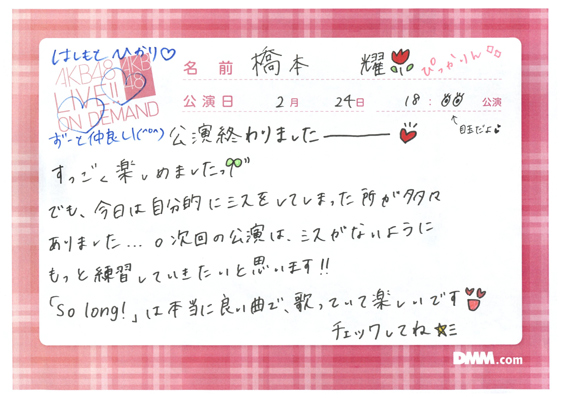 はしもとひかり♡
AKB48
LIVE!!
ON DEMAND
AKB48
ずーと仲良し!(^o^)
名前 橋本 耀 ぴっかりん
公演日 2月 24日 18:00 公演
↑目玉だよ
公演終わりましたーーー
すっごく楽しめましたっ
でも、今日は自分的にミスをしてしまった所が多々
ありました...。次回の公演は、ミスがないように
もっと練習していきたいと思います!!
「So long!」は本当に良い曲で、歌っていて楽しいです
チェックしてね☆ミ
DMM.com